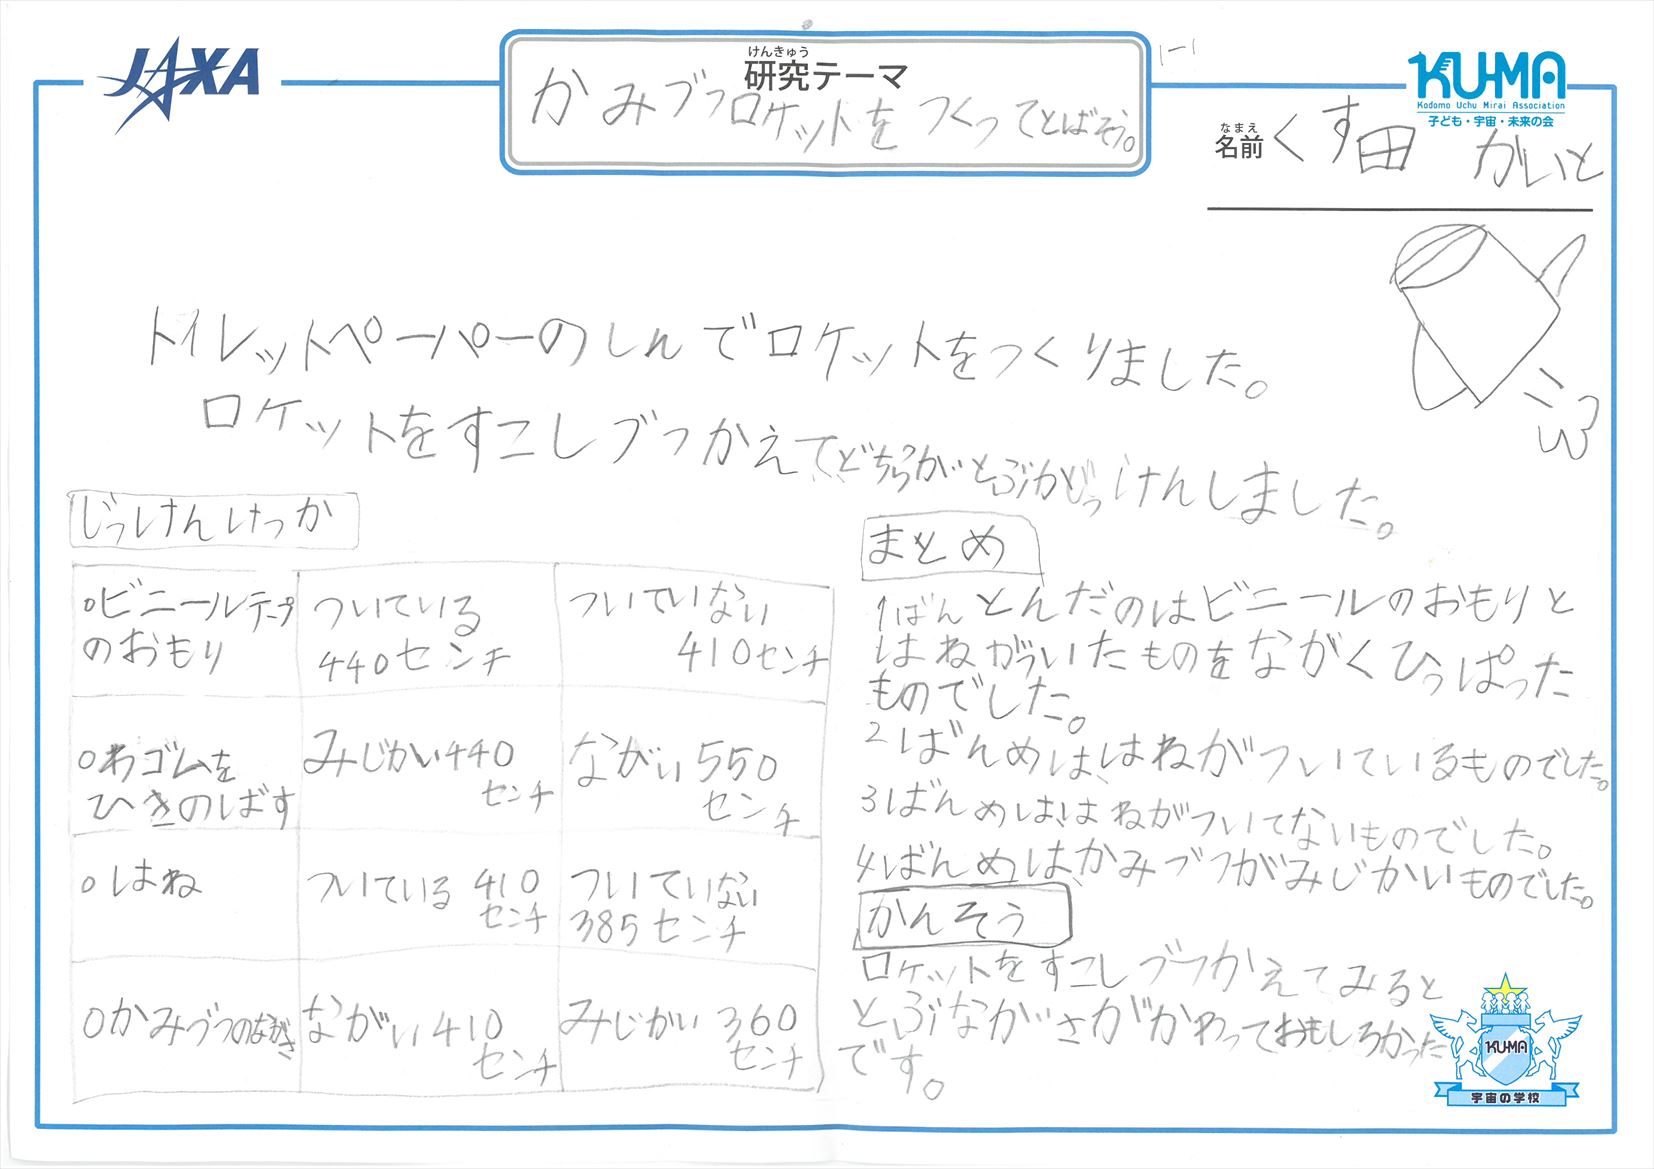 JAXA
けんきゅう
研究テーマ
かみづつロケットをつくってとばそう。
1-1
KU-MA
Kodomo Uchu Mirai Association
子ども・宇宙・未来の会
なまえ
名前 くす田 かいと
トイレットペーパーのしんでロケットをつくりました。
ロケットをすこしづつかえて、どちらがとぶかじっけんしました。
じっけんけっか
○ビニールテープ ついている ついていない
のおもり 440センチ 410センチ
○わゴムを みじかい440 ながい550
ひきのばす センチ センチ
○はね ついている 410 ついていない
センチ 385センチ
○かみづつのながさ ながい410 みじかい 360
センチ センチ
まとめ
1ばんとんだのはビニールのおもりと
はねがついたものをながくひっぱった
ものでした。
2ばんめは、はねがついているものでした。
3ばんめは、はねがついてないものでした。
4ばんめは、かみづつがみじかいものでした。
かんそう
ロケットをすこしづつかえてみると
とぶながさがかわっておもしろかった
です。
KU-MA
宇宙の学校